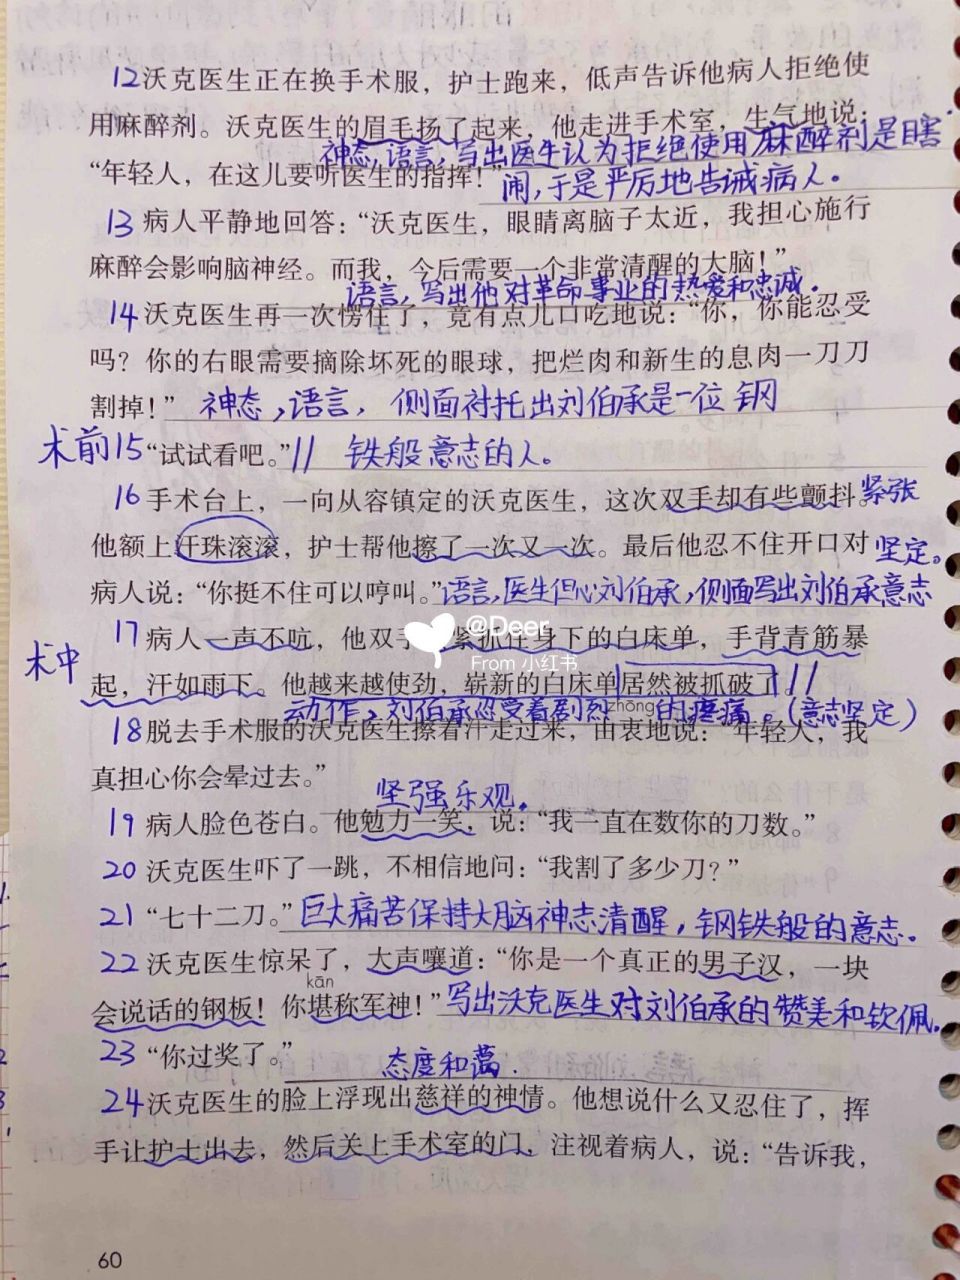 12沃克医生正在换手术服，护士跑来，低声告诉他病人拒绝使
用麻醉剂。沃克医生的眉毛扬了起来，他走进手术室，生气地说：
神态,语言,写出医生认为拒绝使用麻醉剂是瞎
“年轻人，在这儿要听医生的指挥！”
闹,于是严厉地告诫病人。
13 病人平静地回答：“沃克医生，眼睛离脑子太近，我担心施行
麻醉会影响脑神经。而我，今后需要一个非常清醒的大脑！”
语言,写出他对革命事业的热爱和忠诚.
14 沃克医生再一次愣住了，竟有点儿口吃地说：“你，你能忍受
吗？你的右眼需要摘除坏死的眼球，把烂肉和新生的息肉一刀刀
割掉！” 神态,语言,侧面衬托出刘伯承是一位钢
术前15“试试看吧。”// 铁般意志的人。
16 手术台上，一向从容镇定的沃克医生，这次双手却有些颤抖。紧张
他额上汗珠滚滚，护士帮他擦了一次又一次。最后他忍不住开口对 坚定。
病人说：“你挺不住可以哼叫。”语言,医生担心刘伯承,侧面写出刘伯承意志
17 病人一声不吭，他双手紧抓住身下的白床单，手背青筋暴
@Deer
From 小红书
术中
起，汗如雨下。他越来越使劲，崭新的白床单居然被抓破了。//
动作,刘伯承忍受着剧烈的疼痛。(意志坚定)
zhōng
18脱去手术服的沃克医生擦着汗走过来，由衷地说：“年轻人，我
真担心你会晕过去。”
坚强乐观.
19 病人脸色苍白。他勉力一笑，说：“我一直在数你的刀数。”
20 沃克医生吓了一跳，不相信地问：“我割了多少刀？”
21 “七十二刀。”巨大痛苦保持大脑神志清醒,钢铁般的意志。
22 沃克医生惊呆了，大声嚷道：“你是一个真正的男子汉，一块
kān
会说话的钢板！你堪称军神！”写出沃克医生对刘伯承的赞美和钦佩.
23 “你过奖了。”
态度和蔼.
24 沃克医生的脸上浮现出慈祥的神情。他想说什么又忍住了，挥
手让护士出去，然后关上手术室的门，注视着病人，说：“告诉我，
60